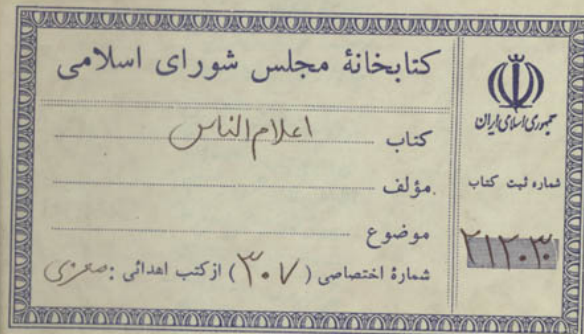 کتابخانهٔ مجلس شورای اسلامی
کتاب اعلام الناس
مؤلف
موضوع
شمارهٔ اختصاصی ( ۳۰۷ ) از کتب اهدائی :
جمهوری اسلامی ایران
شماره ثبت کتاب
۲۱۲۰۳۰